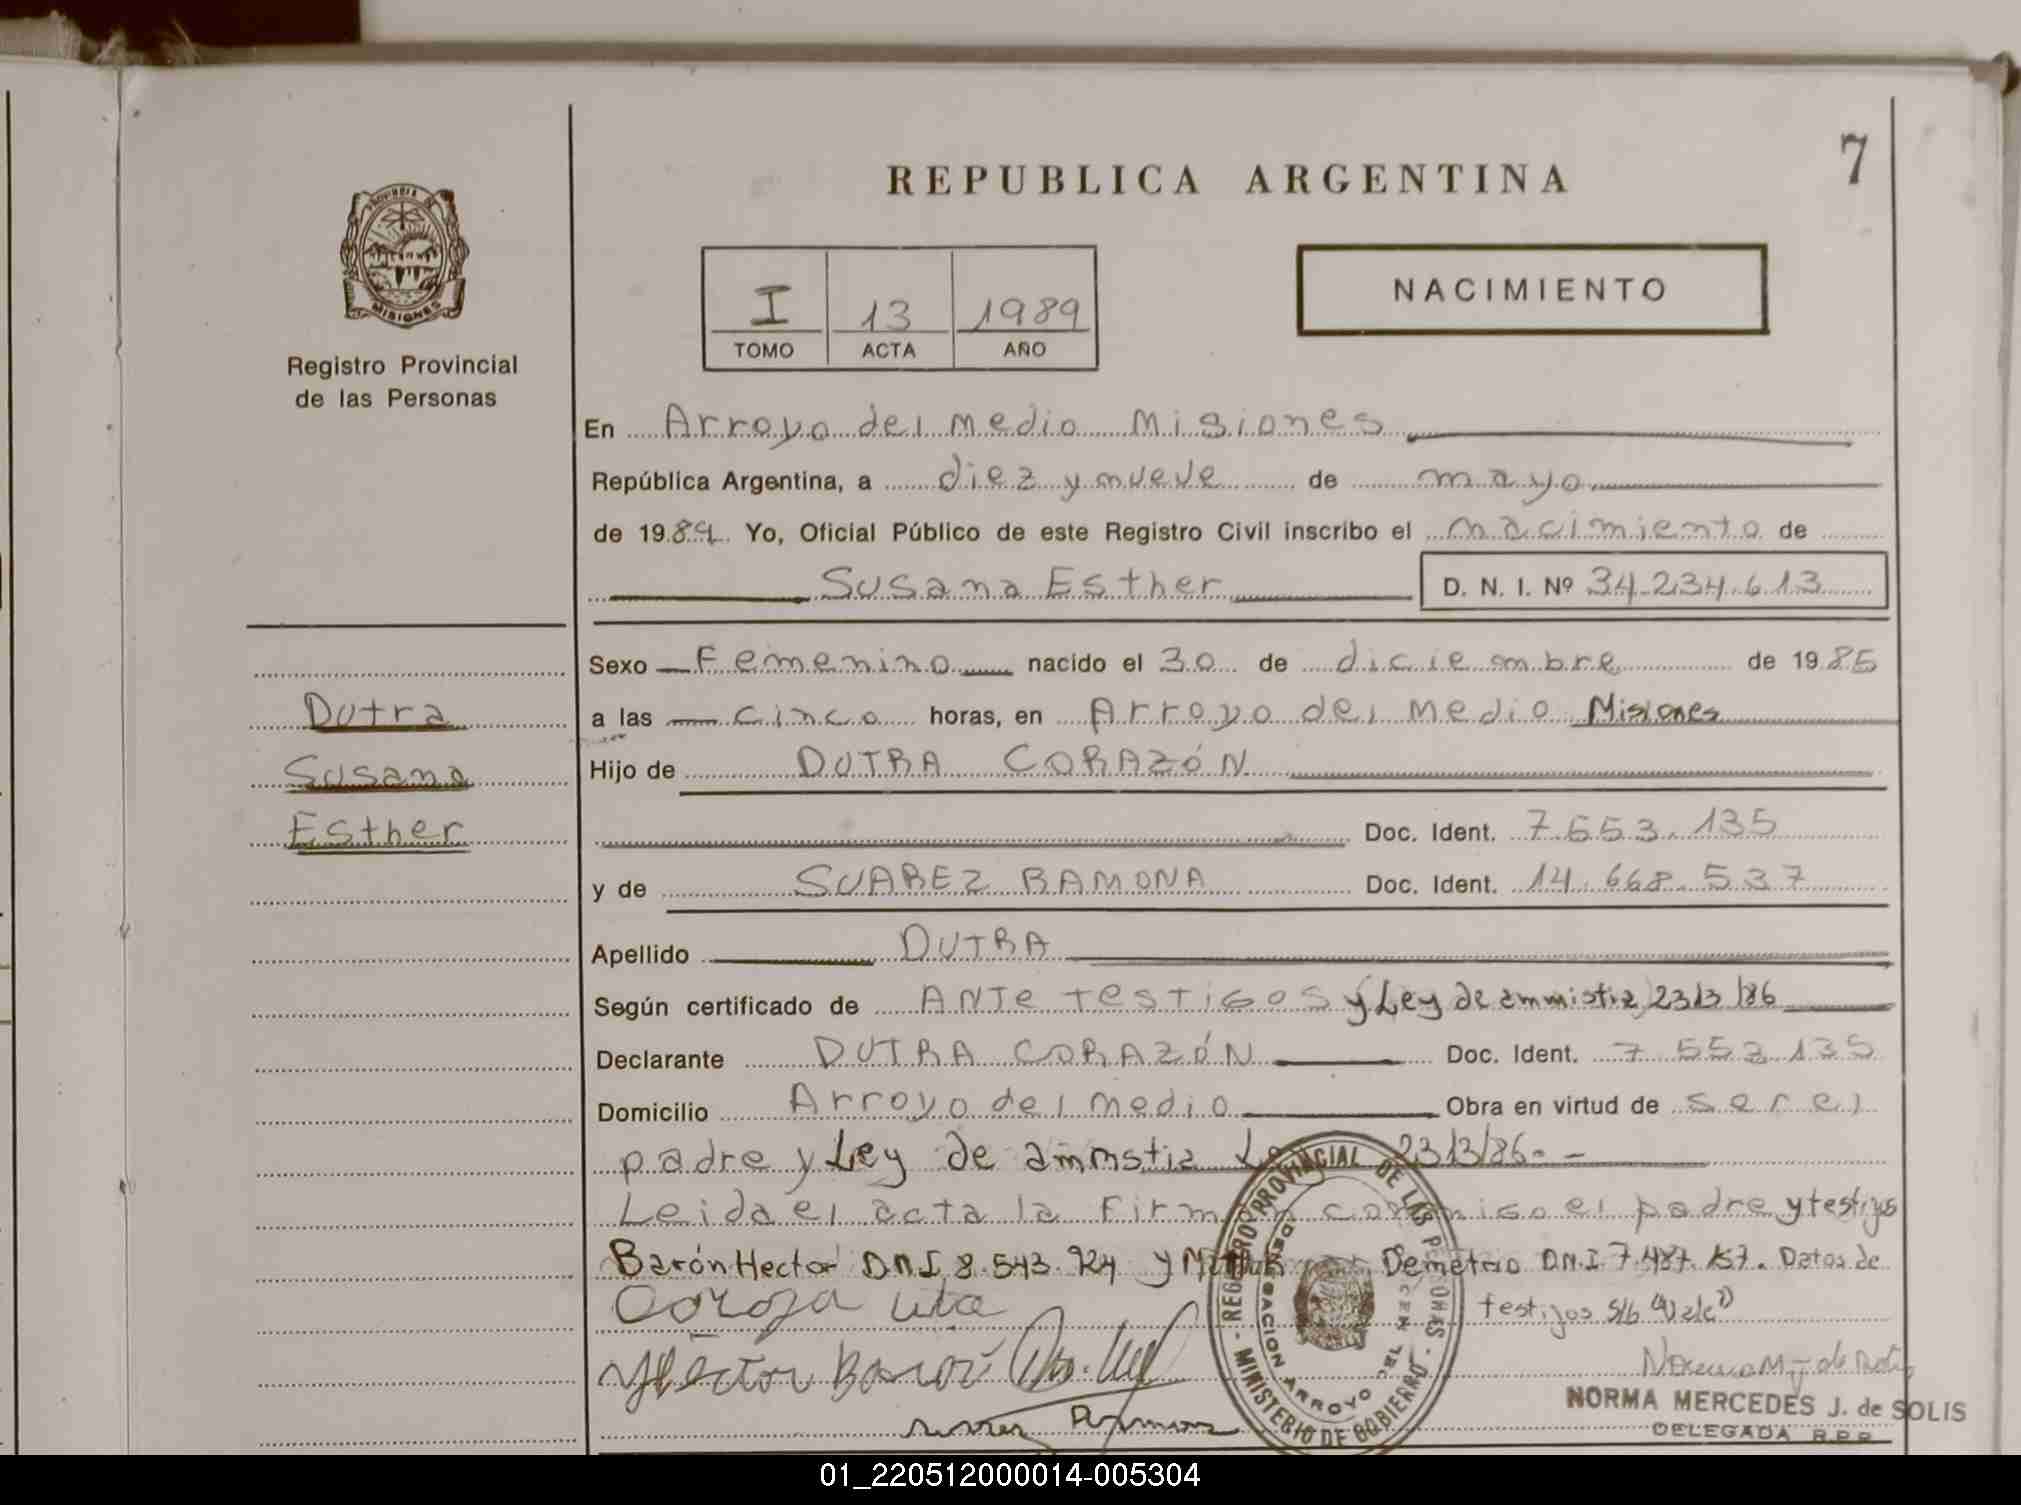 7
REPUBLICA ARGENTINA
PROVINCIA DE
MISIONES
Registro Provincial
de las Personas
I 13 1989
TOMO ACTA AÑO
NACIMIENTO
En Arroyo del Medio Misiones
República Argentina, a diez y nueve de mayo
de 1989 Yo, Oficial Público de este Registro Civil inscribo el nacimiento de
Susana Esther D. N. I. Nº 34.234.613
Sexo Femenino nacido el 30 de diciembre de 1985
Dutra
a las cinco horas, en Arroyo del Medio Misiones
Susana
Hijo de DUTRA CORAZÓN
Esther
Doc. Ident. 7553.135
y de SUAREZ RAMONA Doc. Ident. 14.668.537
Apellido DUTRA
Según certificado de ANTe TESTIGOS y Ley de ammistia 2313/86
Declarante DUTRA CORAZÓN Doc. Ident. 7 553.135
Domicilio Arroyo del Medio Obra en virtud de ser el
padre y Ley de ammstia 2313/86.-
Leida el acta la Firman conmigo el padre y testigos
Barón Hector D.N.I 8.543.924 y Demetrio D.N.I 7.487. Datos de
testigos S/b "Vale"
Hector Baron
REGISTRO PROVINCIAL DE LAS PERSONAS
MINISTERIO DE GOBIERNO
DELEGACION ARROYO DEL
NORMA MERCEDES J. de SOLIS
DELEGADA R.P.P.
01_220512000014-005304